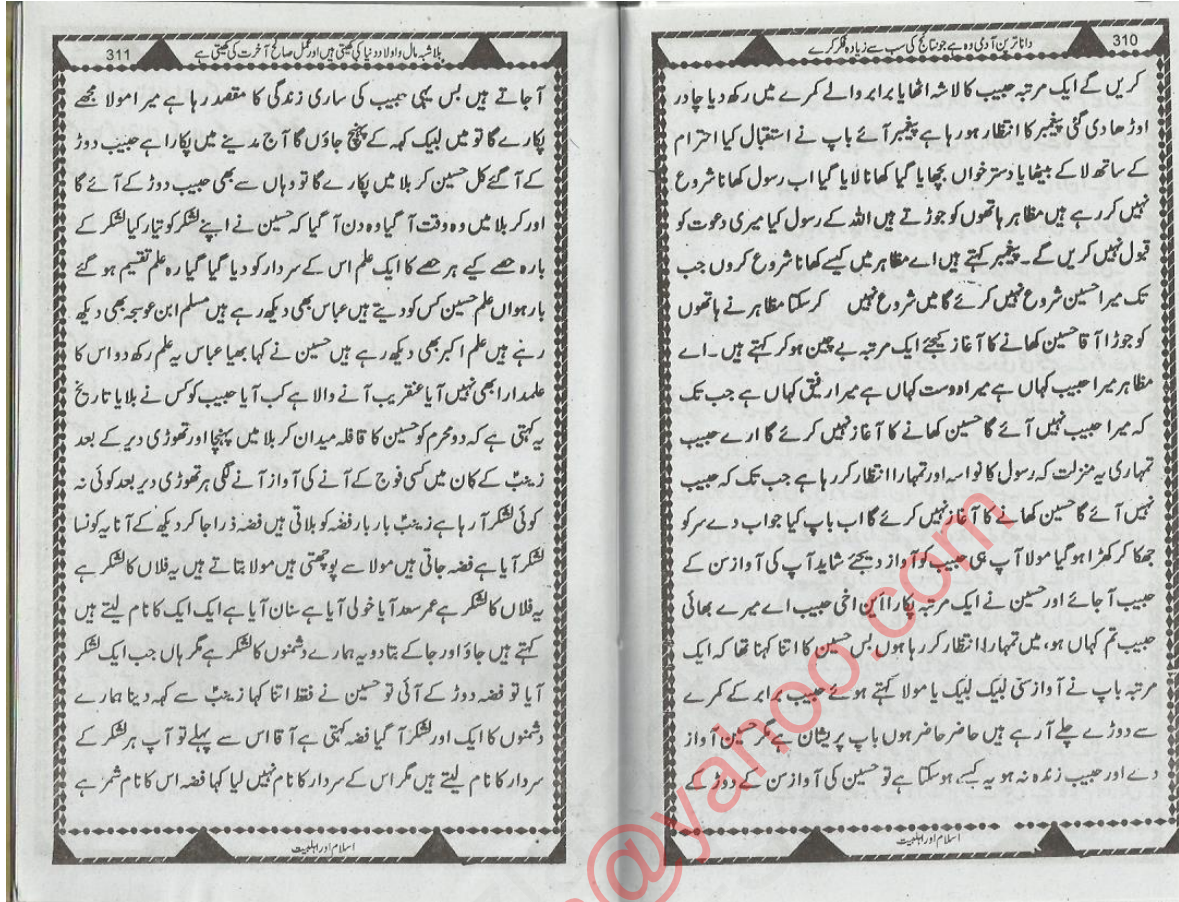 310
دانا ترین آدمی وہ ہے جو نتائج کی سب سے زیادہ فکر کرے
کریں گے ایک مرتبہ حبیب کا لاشہ اٹھایا برابر والے کمرے میں رکھ دیا چادر
اوڑھا دی گئی پیغمبر کا انتظار ہو رہا ہے پیغمبر آئے باپ نے استقبال کیا احترام
کے ساتھ لا کے بیٹھایا دستر خواں بچھایا گیا کھانا لایا گیا اب رسول کھانا شروع
نہیں کر رہے ہیں مظاہر ہاتھوں کو جوڑتے ہیں اللہ کے رسول کیا میری دعوت کو
قبول نہیں کریں گے۔ پیغمبر کہتے ہیں اے مظاہر میں کیسے کھانا شروع کروں جب
تک میرا حسین شروع نہیں کرے گا میں شروع نہیں کر سکتا مظاہر نے ہاتھوں
کو جوڑا آقا حسین کھانے کا آغاز کیجئے ایک مرتبہ بے چین ہو کر کہتے ہیں۔ اے
مظاہر میرا حبیب کہاں ہے میرا دوست کہاں ہے میرا رفیق کہاں ہے جب تک
کہ میرا حبیب نہیں آئے گا حسین کھانے کا آغاز نہیں کرے گا ارے حبیب
تمہاری یہ منزلت کہ رسول کا نواسہ اور تمہارا انتظار کر رہا ہے جب تک کہ حبیب
نہیں آئے گا حسین کھانے کا آغاز نہیں کرے گا اب باپ کیا جواب دے سر کو
جھکا کر کھڑا ہو گیا مولا آپ ہی حبیب کو آواز دیجئے شاید آپ کی آواز سن کے
حبیب آ جائے اور حسین نے ایک مرتبہ پکارا این اخی حبیب اے میرے بھائی
حبیب تم کہاں ہو، میں تمہارا انتظار کر رہا ہوں بس حسین کا اتنا کہنا تھا کہ ایک
مرتبہ باپ نے آواز سنی لبیک لبیک یا مولا کہتے ہوئے حبیب برابر کے کمرے
سے دوڑے چلے آ رہے ہیں حاضر حاضر ہوں باپ پریشان ہے مگر حسین آواز
دے اور حبیب زندہ نہ ہو یہ کیسے ہو سکتا ہے تو حسین کی آواز سن کے دوڑ کے
اسلام اور اہلبیت
311
بلاشبہ مال و اولاد دنیا کی کھیتی ہیں اور عمل صالح آخرت کی کھیتی ہے
آ جاتے ہیں بس یہی حبیب کی ساری زندگی کا مقصد رہا ہے میرا مولا مجھے
پکارے گا تو میں لبیک کہہ کے پہنچ جاؤں گا آج مدینے میں پکارا ہے حبیب دوڑ
کے آ گئے کل حسین کربلا میں پکارے گا تو وہاں سے بھی حبیب دوڑ کے آئے گا
اور کربلا میں وہ وقت آ گیا وہ دن آ گیا کہ حسین نے اپنے لشکر کو تیار کیا لشکر کے
بارہ حصے کیے ہر حصے کا ایک علم اس کے سردار کو دیا گیا گیارہ علم تقسیم ہو گئے
بارہواں علم حسین کس کو دیتے ہیں عباس بھی دیکھ رہے ہیں مسلم ابن عوسجہ بھی دیکھ
رہے ہیں علم اکبر بھی دیکھ رہے ہیں حسین نے کہا بھیا عباس یہ علم رکھ دو اس کا
علمدار ابھی نہیں آیا عنقریب آنے والا ہے کب آیا حبیب کو کس نے بلایا تاریخ
یہ کہتی ہے کہ دو محرم کو حسین کا قافلہ میدان کربلا میں پہنچا اور تھوڑی دیر کے بعد
زینبؑ کے کان میں کسی فوج کے آنے کی آواز آنے لگی ہر تھوڑی دیر بعد کوئی نہ
کوئی لشکر آ رہا ہے زینبؑ بار بار فضہ کو بلاتی ہیں فضہ ذرا جا کر دیکھ کے آنا یہ کونسا
لشکر آیا ہے فضہ جاتی ہیں مولا سے پوچھتی ہیں مولا بتاتے ہیں یہ فلاں کا لشکر ہے
یہ فلاں کا لشکر ہے عمر سعد آیا خولی آیا ہے سنان آیا ہے ایک ایک کا نام لیتے ہیں
کہتے ہیں جاؤ اور جا کے بتا دو یہ ہمارے دشمنوں کا لشکر ہے مگر ہاں جب ایک لشکر
آیا تو فضہ دوڑ کے آئی تو حسین نے فقط اتنا کہا زینبؑ سے کہہ دینا ہمارے
دشمنوں کا ایک اور لشکر آ گیا فضہ کہتی ہے آقا اس سے پہلے تو آپ ہر لشکر کے
سردار کا نام لیتے ہیں مگر اس کے سردار کا نام نہیں لیا کہا فضہ اس کا نام شمر ہے
اسلام اور اہلبیت
@yahoo.com